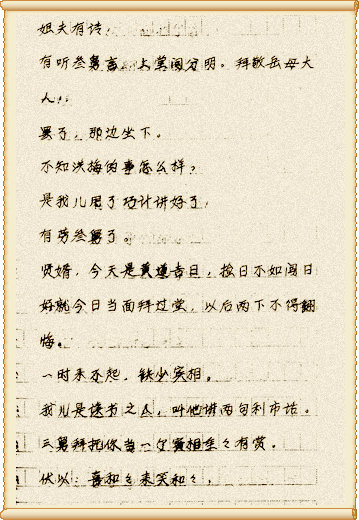 姐夫有请！
有听叁舅言，上堂问分明。拜敬岳母大
人！
罢了，那边坐下。
不知洪梅的事怎么样？
是我儿用了巧计讲好了！
有劳叁舅了。
贤婿，今天是黄道吉日，按日不如闯日
好就今日当面拜过堂，以后两下不得翻
悔。
一时来不起，缺少宾相。
我儿是读书之人，叫他讲两句利市话。
三舅拜托你当一个宾相
有赏。
伏以：喜和々来笑和々，